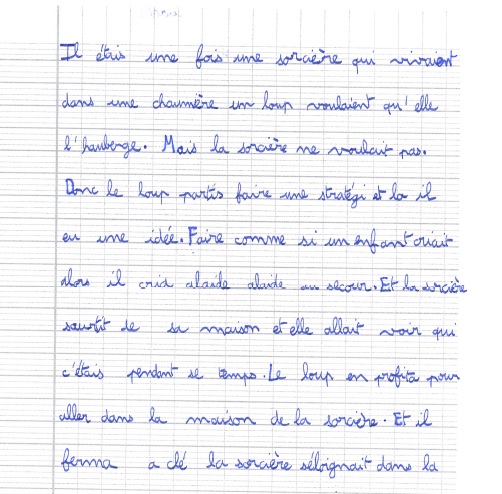 Il étais une fois une sorcière qui vivaient
dans une chaumière un loup voulaient qu'elle
l'hauberge. Mais la sorcière ne voulait pas.
Donc le loup partis faire une stratégi et la il
eu une idée. Faire comme si un enfant criait
alors il crid alaide alaide au secour. Et la sorcière
sourtit de sa maison et elle allait voir qui
c'étais pendant se temps. Le loup en profita pour
aller dans la maison de la sorcière. Et il
ferma a clé la sorcière séloignait dans la